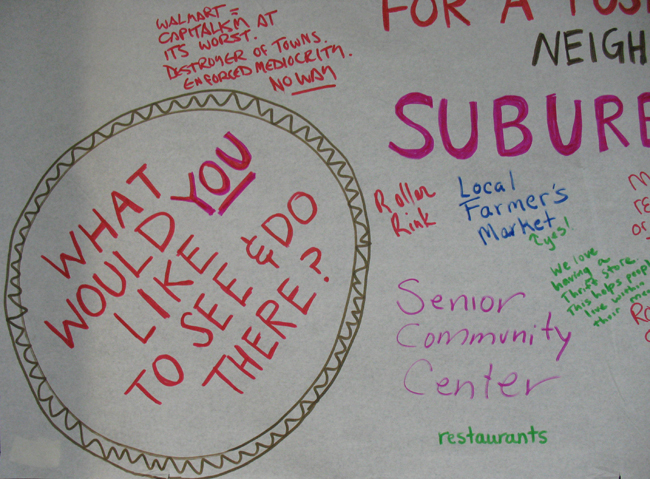 WALMART =
CAPITALISM AT
ITS WORST.
DESTROYER OF TOWNS.
ENFORCED MEDIOCRITY.
NO WAY
FOR A
NEIGH
SUBURB
WHAT
WOULD YOU
LIKE
TO SEE & DO
THERE?
Roller
Rink
Local
Farmer's
Market
yes!
We love
having a
Thrift store
This helps people
live within
their
Senior
Community
Center
restaurants